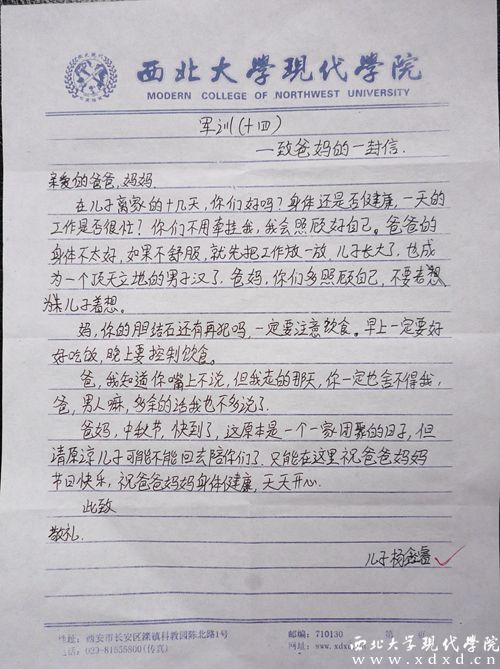 西北大學現代學院
MODERN COLLEGE OF NORTHWEST UNIVERSITY
军训(十四)
一致爸妈的一封信.
亲爱的爸爸,妈妈.
在儿子离家的十几天,你们好吗?身体还是否健康,一天的
工作是否很忙?你们不用牵挂我,我会照顾好自己。爸爸的
身体不太好,如果不舒服,就先把工作放一放,儿子长大了,也成
为一个顶天立地的男子汉了.爸妈,你们多照顾自己,不要老想
为儿子着想.
妈,你的胆结石还有再犯吗,一定要注意饮食。早上一定要好
好吃饭,晚上要控制饮食。
爸,我知道你嘴上不说,但我走的那天,你一定也舍不得我,
爸,男人嘛,多余的话我也不多说了.
爸妈,中秋节,快到了,这原本是一个一家团聚的日子,但
请原谅儿子可能不能回去陪你们了.只能在这里祝爸爸妈妈
节日快乐,祝爸爸妈妈身体健康,天天开心.
此致
敬礼.
儿子杨鑫
地址:西安市长安区滦镇科教园陈北路1号
电话:029-81555800(传真)
邮编:710130
网址:www.xdxd
西北大学现代学院
www.xdxd.cn